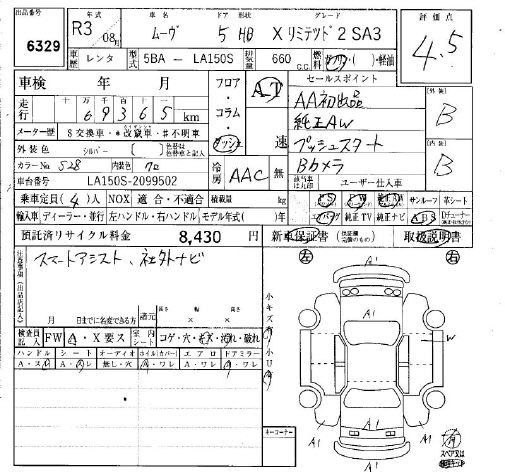 出品番号 6329
年式 R3 08月
車名 ムーヴ
ドア 形状 5 HB
グレード Xリミテッド2 SA3
評価点 4.5
車歴 レンタ
型式 5BA - LA150S
排気量 660 C.C.
燃料 ガソリン・軽油
車検 年 月
フロア・コラム・ダッシュ
AT 速
セールスポイント
走行 十万 万 千 百 十 一
69365 km
AA初出品
純正AW
プッシュスタート
Bカメラ
外装 B
内装 B
メーター歴 S交換車・*改ざん車・#不明車
外装色 シルバー
カラーNo S28 内装色 クロ
車台番号 LA150S-2099502
冷房 AAC 無
ユーザー仕入車
乗車定員(4)人 NOX 適合・不適合 積載量 kg
サンルーフ 革シート
輸入車 ディーラー・並行 左ハンドル・右ハンドル モデル年式( )年
エアバッグ 純正TV 純正ナビ ABS
預託済リサイクル料金 8,430 円
新車保証書 取扱説明書
スマートアシスト、社外ナビ
左 右
月 日までに名変できる方
諸元 長さ 幅 高さ
検査員記入 FW A・X要ス 室内シート コゲ・穴・キズ・汚れ・破れ
ハンドル シート オーディオ ホイルカバー エアロ ドアミラー
A・スレ A・スレ 無し・穴 A・ワレ A・ワレ A・ワレ
小キズ 小U
A1
A1
W
A1
A1
A1
A1
キーコーナー